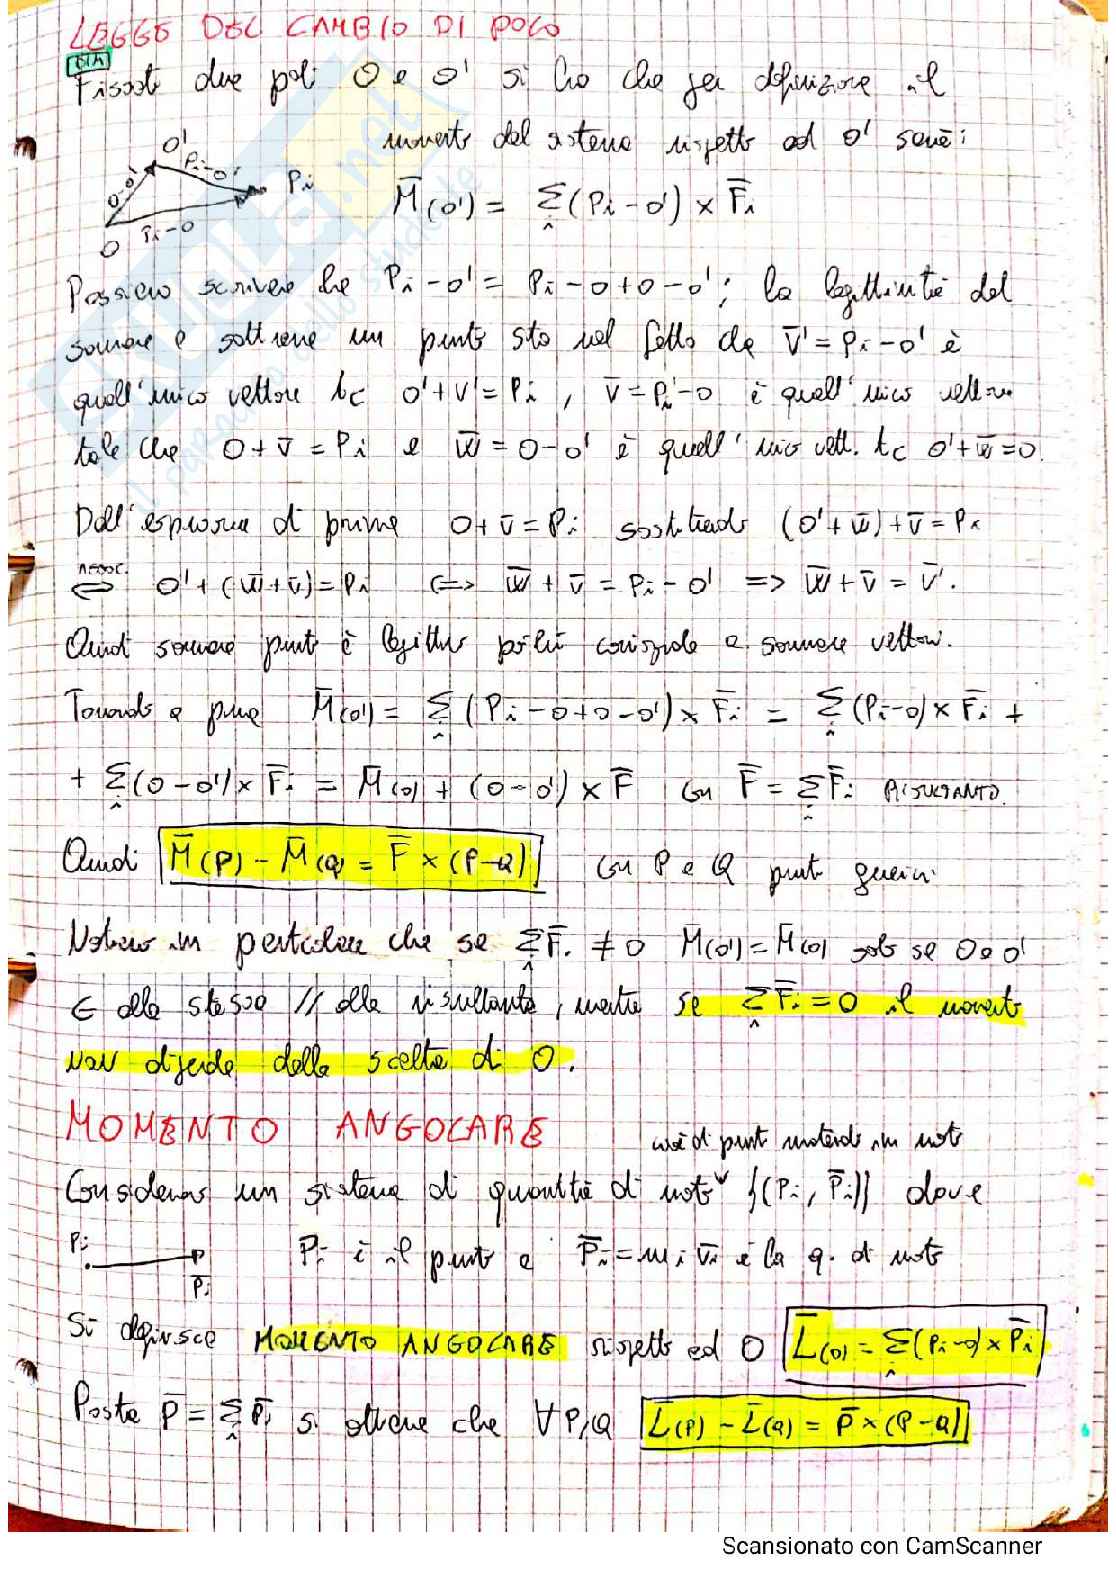 LEGGE DEL CAMBIO DI POLO
Fissati due poli O e O' si ha che per definizione il
momento del sistema rispetto ad O' sarà:
O'
Pi-O'
Pi
O-O'
O
Pi-O
M̄(O') = Σi (Pi-O') × F̄i
Possiamo scrivere che Pi-O' = Pi-O+O-O'; la legittimità del
sommare e sottrarre un punto sta nel fatto che v̄' = Pi-O' è
quell'unico vettore tc O'+v' = Pi, v̄ = Pi-O è quell'unico vettore
tale che O+v̄ = Pi e w̄ = O-O' è quell'unico vett. tc O'+w̄ = O.
Dall'espressione di prima O+v̄ = Pi sostituendo (O'+w̄)+v̄ = Pi
ASSOC.
⟺ O'+(w̄+v̄) = Pi ⟺ w̄+v̄ = Pi-O' => w̄+v̄ = v̄'.
Quindi sommare punti è legittimo poiché corrisponde a sommare vettori.
Tornando a prima M̄(O') = Σi (Pi-O+O-O') × F̄i = Σi (Pi-O) × F̄i +
+ Σi (O-O') × F̄i = M̄(O) + (O-O') × F̄ con F̄ = Σi F̄i RISULTANTE.
Quindi M̄(P) - M̄(Q) = F̄ × (P-Q) con P e Q punti generici
Notiamo in particolare che se Σi F̄i ≠ 0 M̄(O') = M̄(O) solo se O e O'
∈ alla stessa // alla risultante, mentre se Σi F̄i = 0 il momento
non dipende dalla scelta di O.
MOMENTO ANGOLARE
cioè di punti materiali in moto
Consideriamo un sistema di quantità di moto {(Pi, P̄i)} dove
Pi
P̄i
Pi è il punto e P̄i = mi v̄i è la q. di moto
Si definisce MOMENTO ANGOLARE rispetto ad O L̄(O) = Σi (Pi-O) × P̄i
Posta P̄ = Σi P̄i si ottiene che ∀ P,Q L̄(P) - L̄(Q) = P̄ × (P-Q)
Scansionato con CamScanner